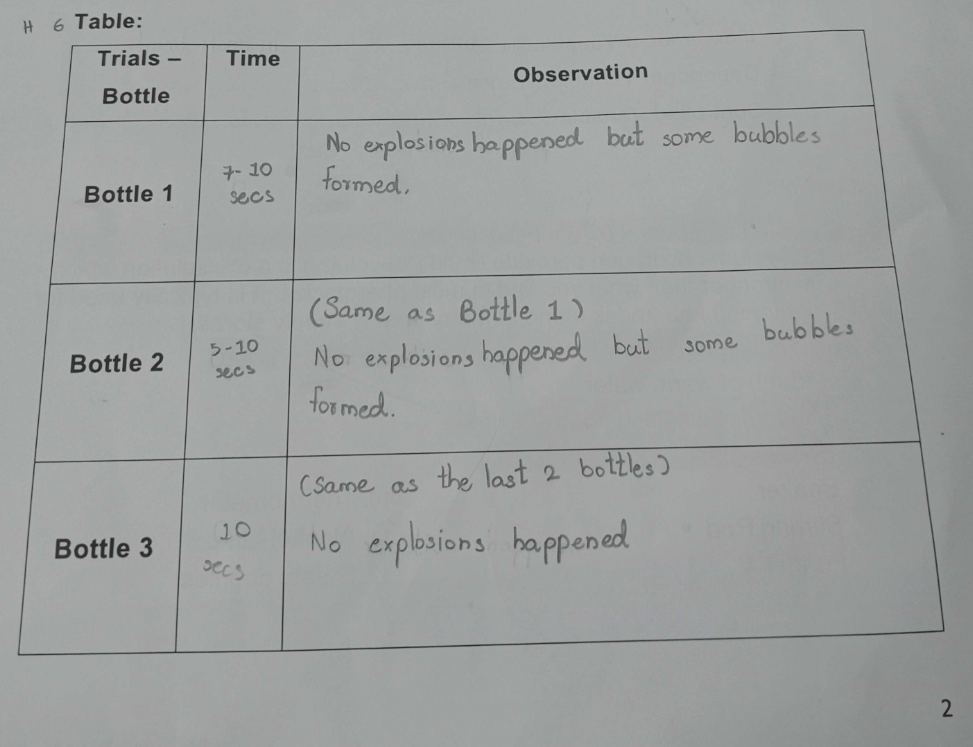 H 6 Table:
Trials –
Bottle
Time
Observation
Bottle 1
7-10
secs
No explosions happened but some bubbles
formed.
Bottle 2
5-10
secs
(Same as Bottle 1)
No explosions happened but some bubbles
formed.
Bottle 3
10
secs
(Same as the last 2 bottles)
No explosions happened
2